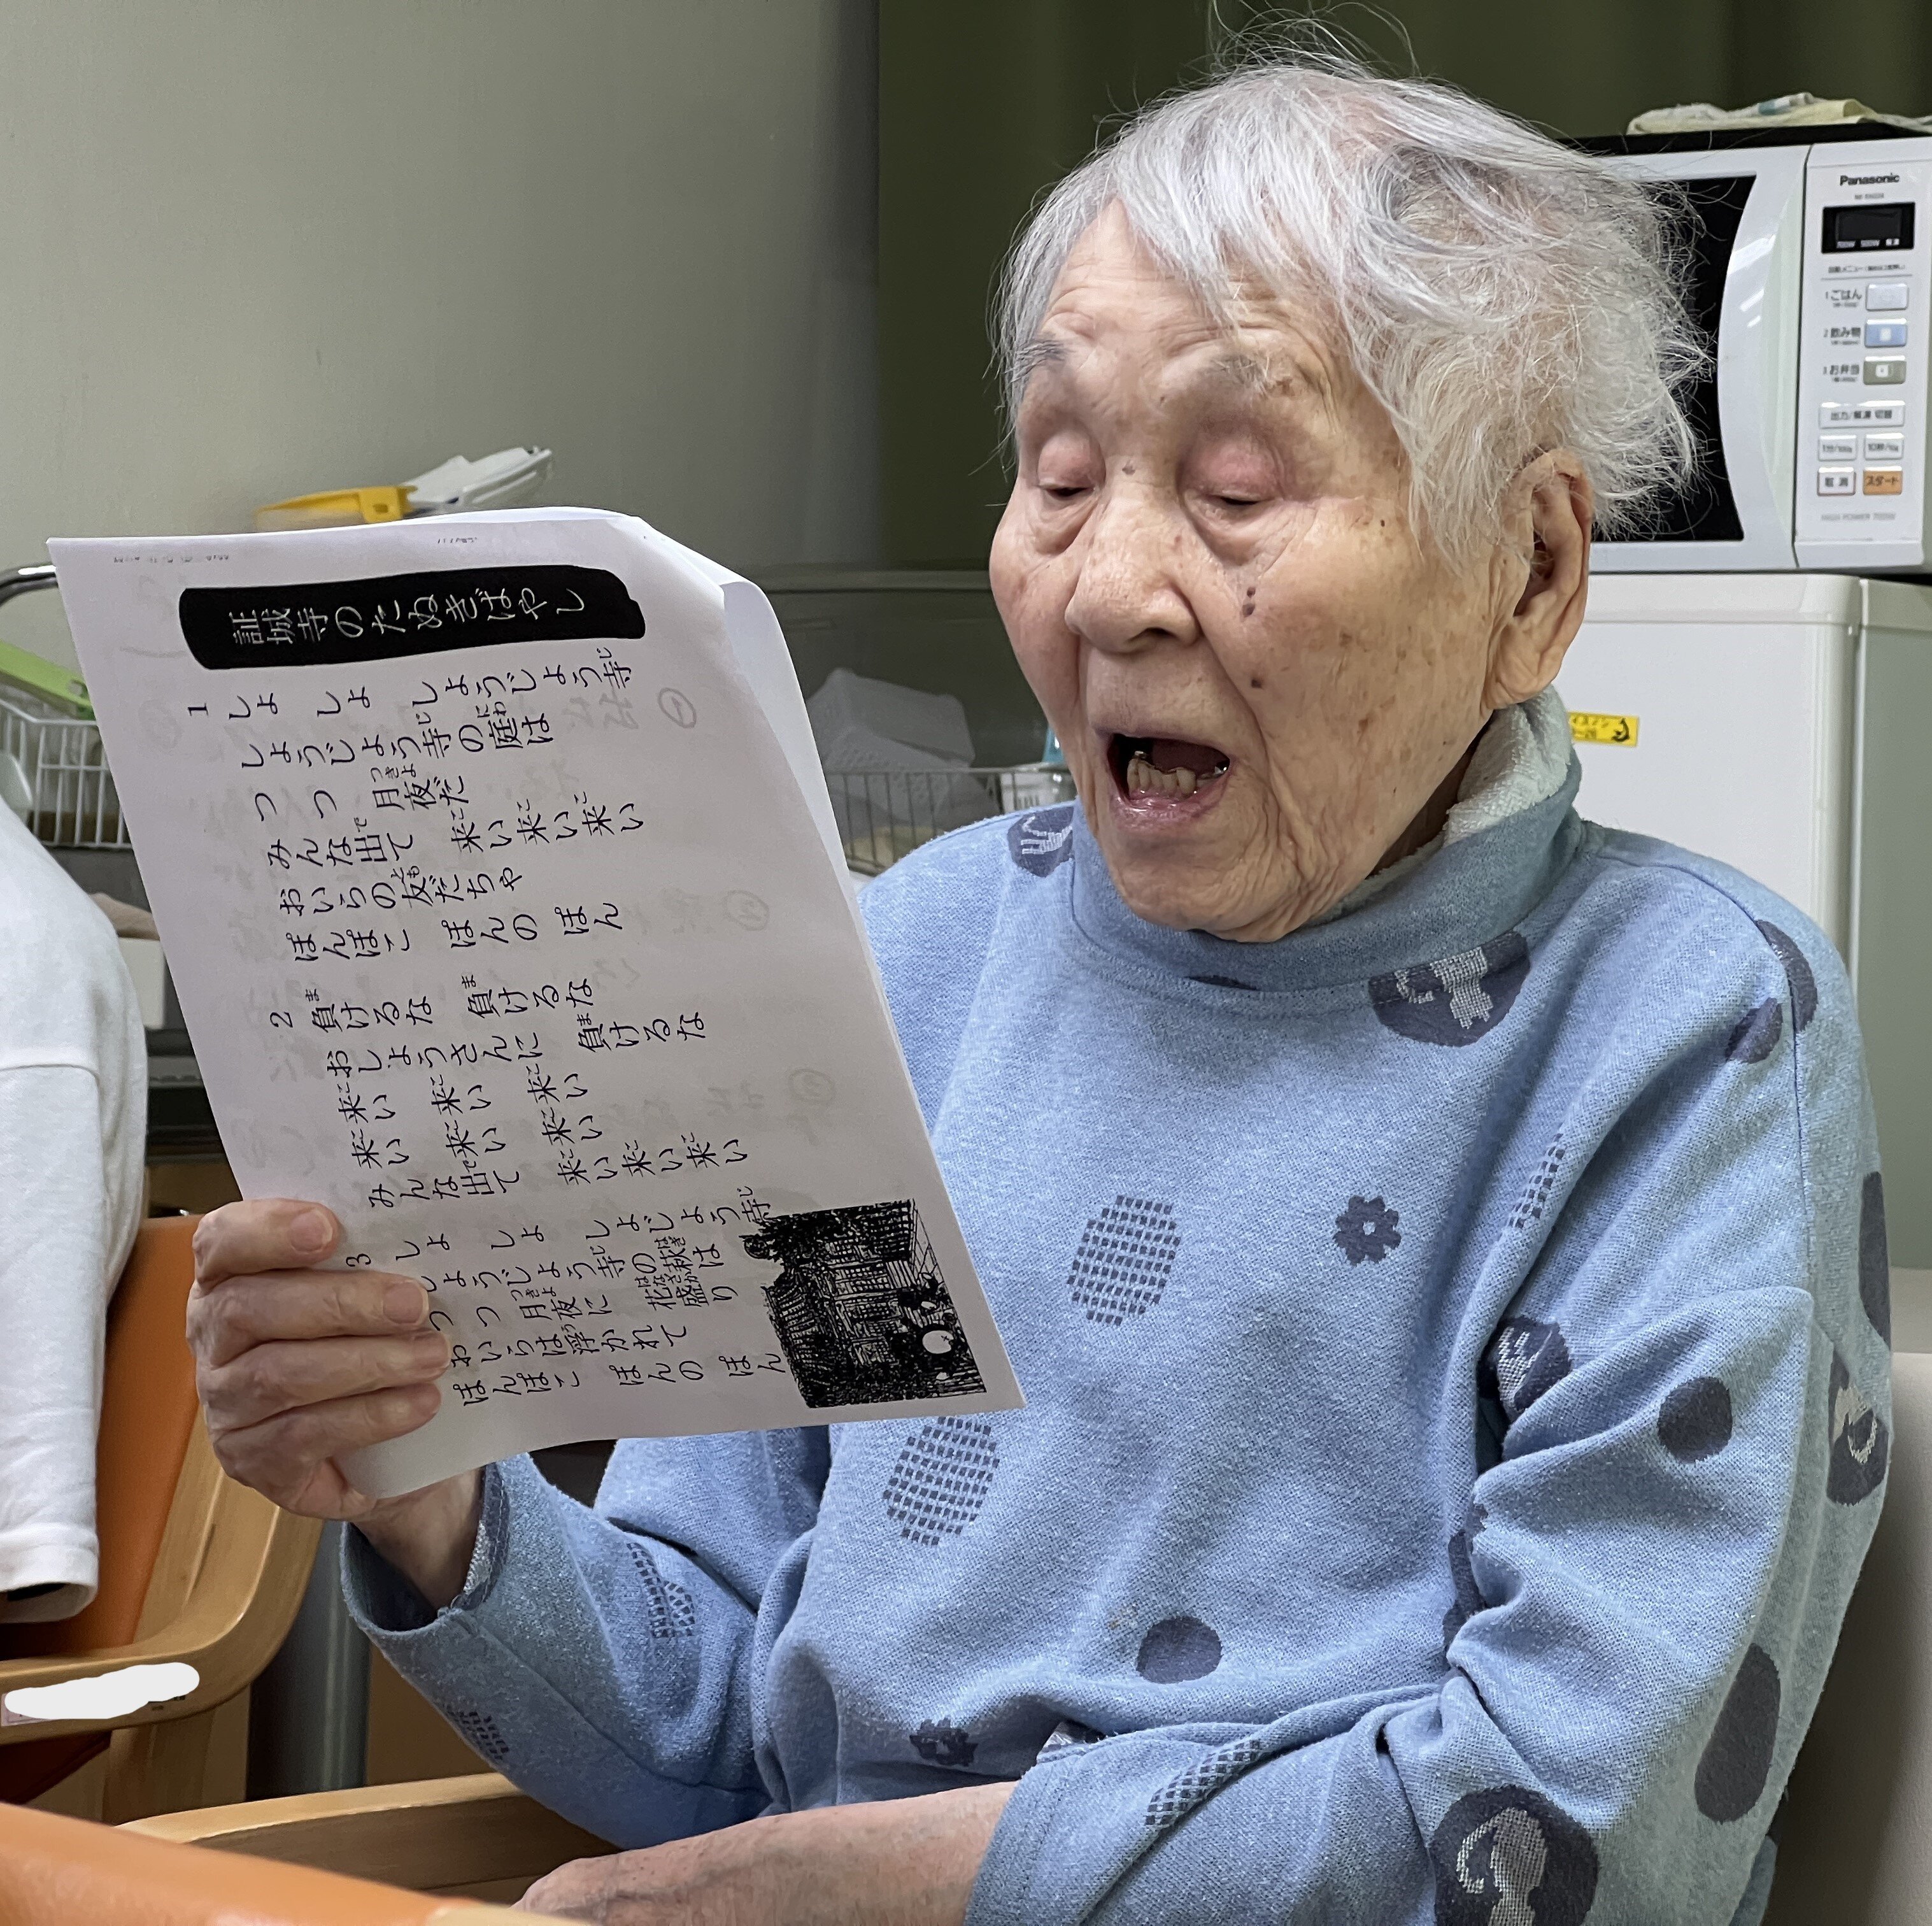 証城寺のたぬきばやし
1 しょ しょ しょうじょう寺
しょうじょう寺の庭は
つ つ 月夜だ
みんな出て 来い来い来い
おいらの友だちゃ
ぽんぽこ ぽんの ぽん
2 負けるな 負けるな
おしょうさんに 負けるな
来い来い 来い来い 来い来い
みんな出て 来い来い来い
3 しょ しょ しょじょう寺
しょうじょう寺の萩は
つ つ 月夜に 花盛り
おいらは浮かれて
ぽんぽこ ぽんの ぽん
Panasonic
700W 500W 解凍
1 ごはん
2 飲み物
3 お弁当
出力/解凍 切替
1分/100g 10秒/10g
取消 スタート
HIGH POWER 700W